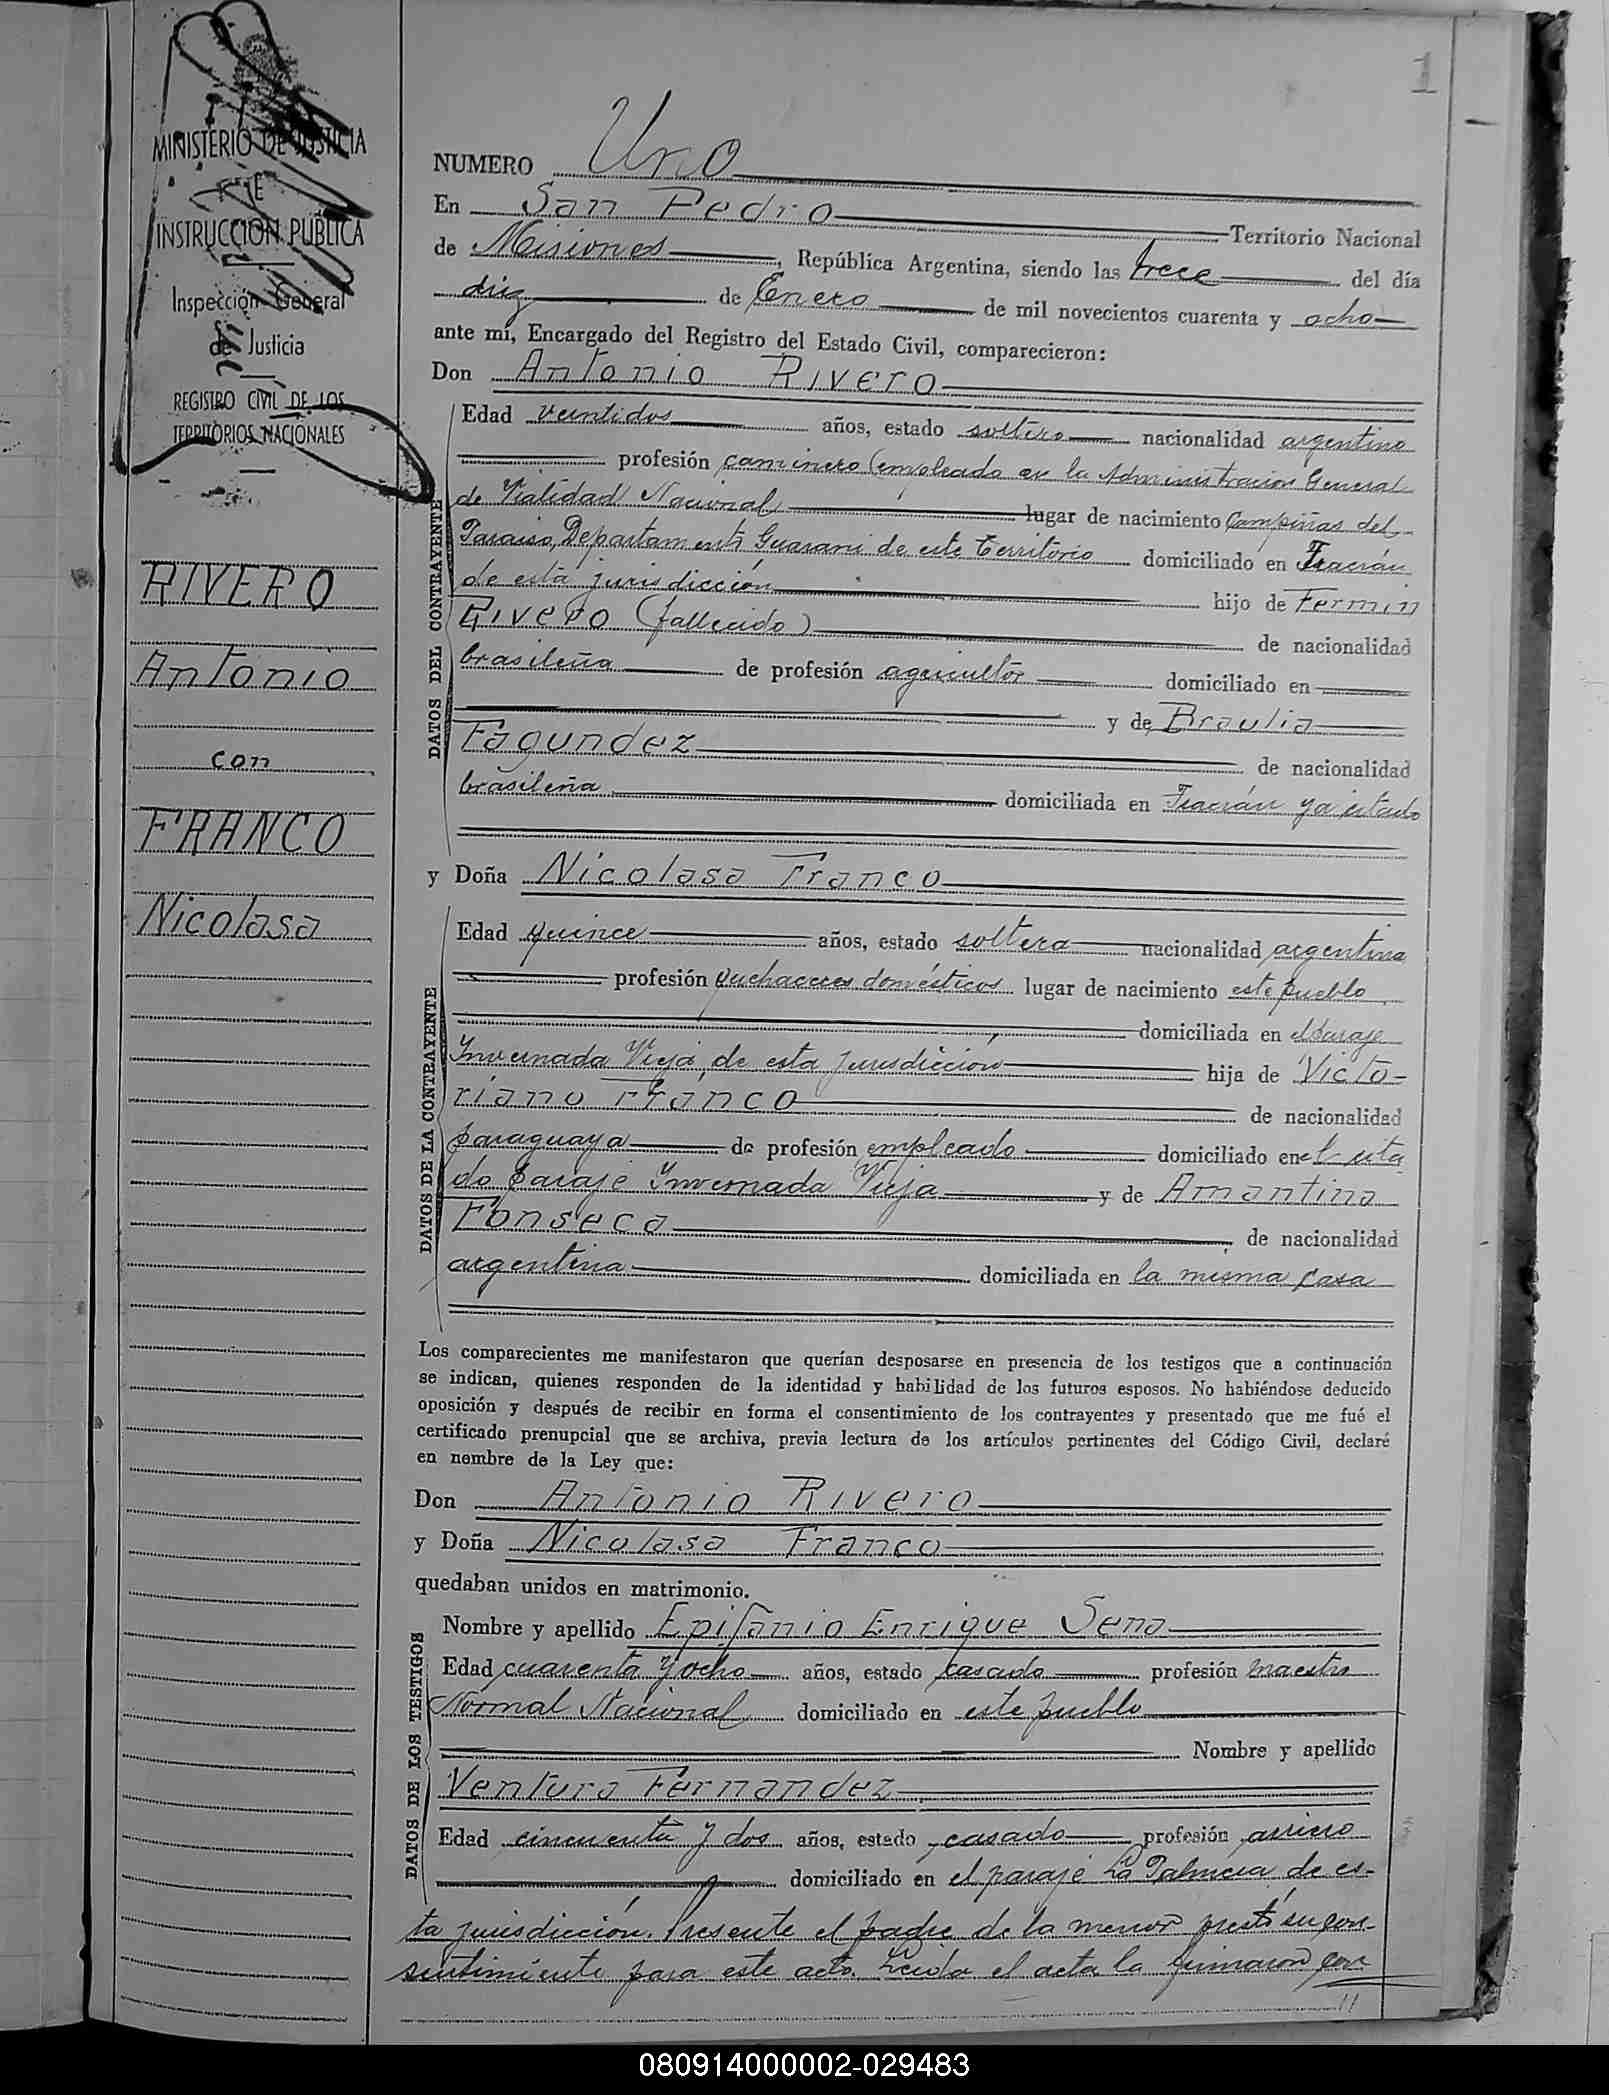 1
MINISTERIO DE JUSTICIA
E
INSTRUCCION PUBLICA
Inspección General
de Justicia
REGISTRO CIVIL DE LOS
TERRITORIOS NACIONALES
RIVERO
Antonio
con
FRANCO
Nicolasa
NUMERO Uno
En San Pedro Territorio Nacional
de Misiones, República Argentina, siendo las trece del día
diez de Enero de mil novecientos cuarenta y ocho
ante mí, Encargado del Registro del Estado Civil, comparecieron:
Don Antonio Rivero
DATOS DEL CONTRAYENTE
Edad veintidos años, estado soltero nacionalidad argentino
profesión caminero (empleado en la Administración General
de Vialidad Nacional lugar de nacimiento Campiñas del
Paraiso, Departamento Guaraní de este territorio domiciliado en Fracrán
de esta jurisdicción hijo de Fermin
Rivero (fallecido) de nacionalidad
brasileña de profesión agricultor domiciliado en
y de Braulia
Fagundez de nacionalidad
brasileña domiciliada en Fracrán ya citado
y Doña Nicolasa Franco
DATOS DE LA CONTRAYENTE
Edad quince años, estado soltera nacionalidad argentina
profesión quehaceres domésticos lugar de nacimiento este pueblo
domiciliada en el paraje
Invernada Vieja, de esta jurisdicción hija de Victo-
riano Franco de nacionalidad
paraguaya de profesión empleado domiciliado en el cita
do paraje Invernada Vieja y de Amantina
Fonseca de nacionalidad
argentina domiciliada en la misma casa
Los comparecientes me manifestaron que querían desposarse en presencia de los testigos que a continuación
se indican, quienes responden de la identidad y habilidad de los futuros esposos. No habiéndose deducido
oposición y después de recibir en forma el consentimiento de los contrayentes y presentado que me fué el
certificado prenupcial que se archiva, previa lectura de los artículos pertinentes del Código Civil, declaré
en nombre de la Ley que:
Don Antonio Rivero
y Doña Nicolasa Franco
quedaban unidos en matrimonio.
DATOS DE LOS TESTIGOS
Nombre y apellido Epifanio Enrique Sena
Edad cuarenta y ocho años, estado casado profesión maestro
Normal Nacional domiciliado en este pueblo
Nombre y apellido
Ventura Fernandez
Edad cincuenta y dos años, estado casado profesión arriero
domiciliado en el paraje La Palmera de es-
ta jurisdicción. Presente el padre de la menor prestó su con-
sentimiento para este acto. Leída el acta la firmaron con
//
080914000002-029483